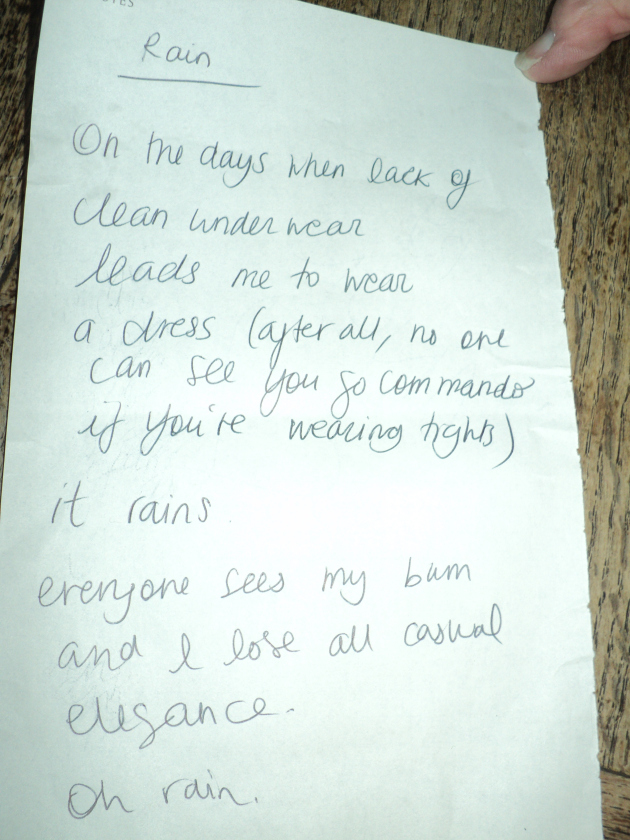 Rain
On the days when lack of
clean underwear
leads me to wear
a dress (after all, no one
can see you go commando
if you're wearing tights)
it rains
everyone sees my bum
and I lose all casual
elegance.
Oh rain.